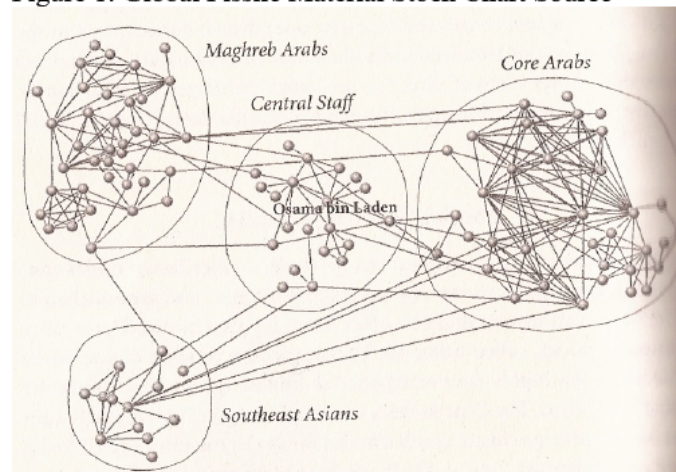 Figure 1: Global Fissile Material Stock Chart Source
Maghreb Arabs
Core Arabs
Central Staff
Osama bin Laden
Southeast Asians